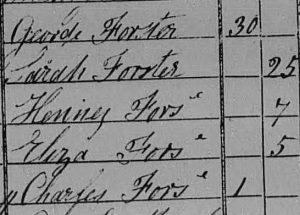 George Forster 30
Sarah Forster 25
Henney Fors" 7
Eliza Fors" 5
Charles Fors" 1